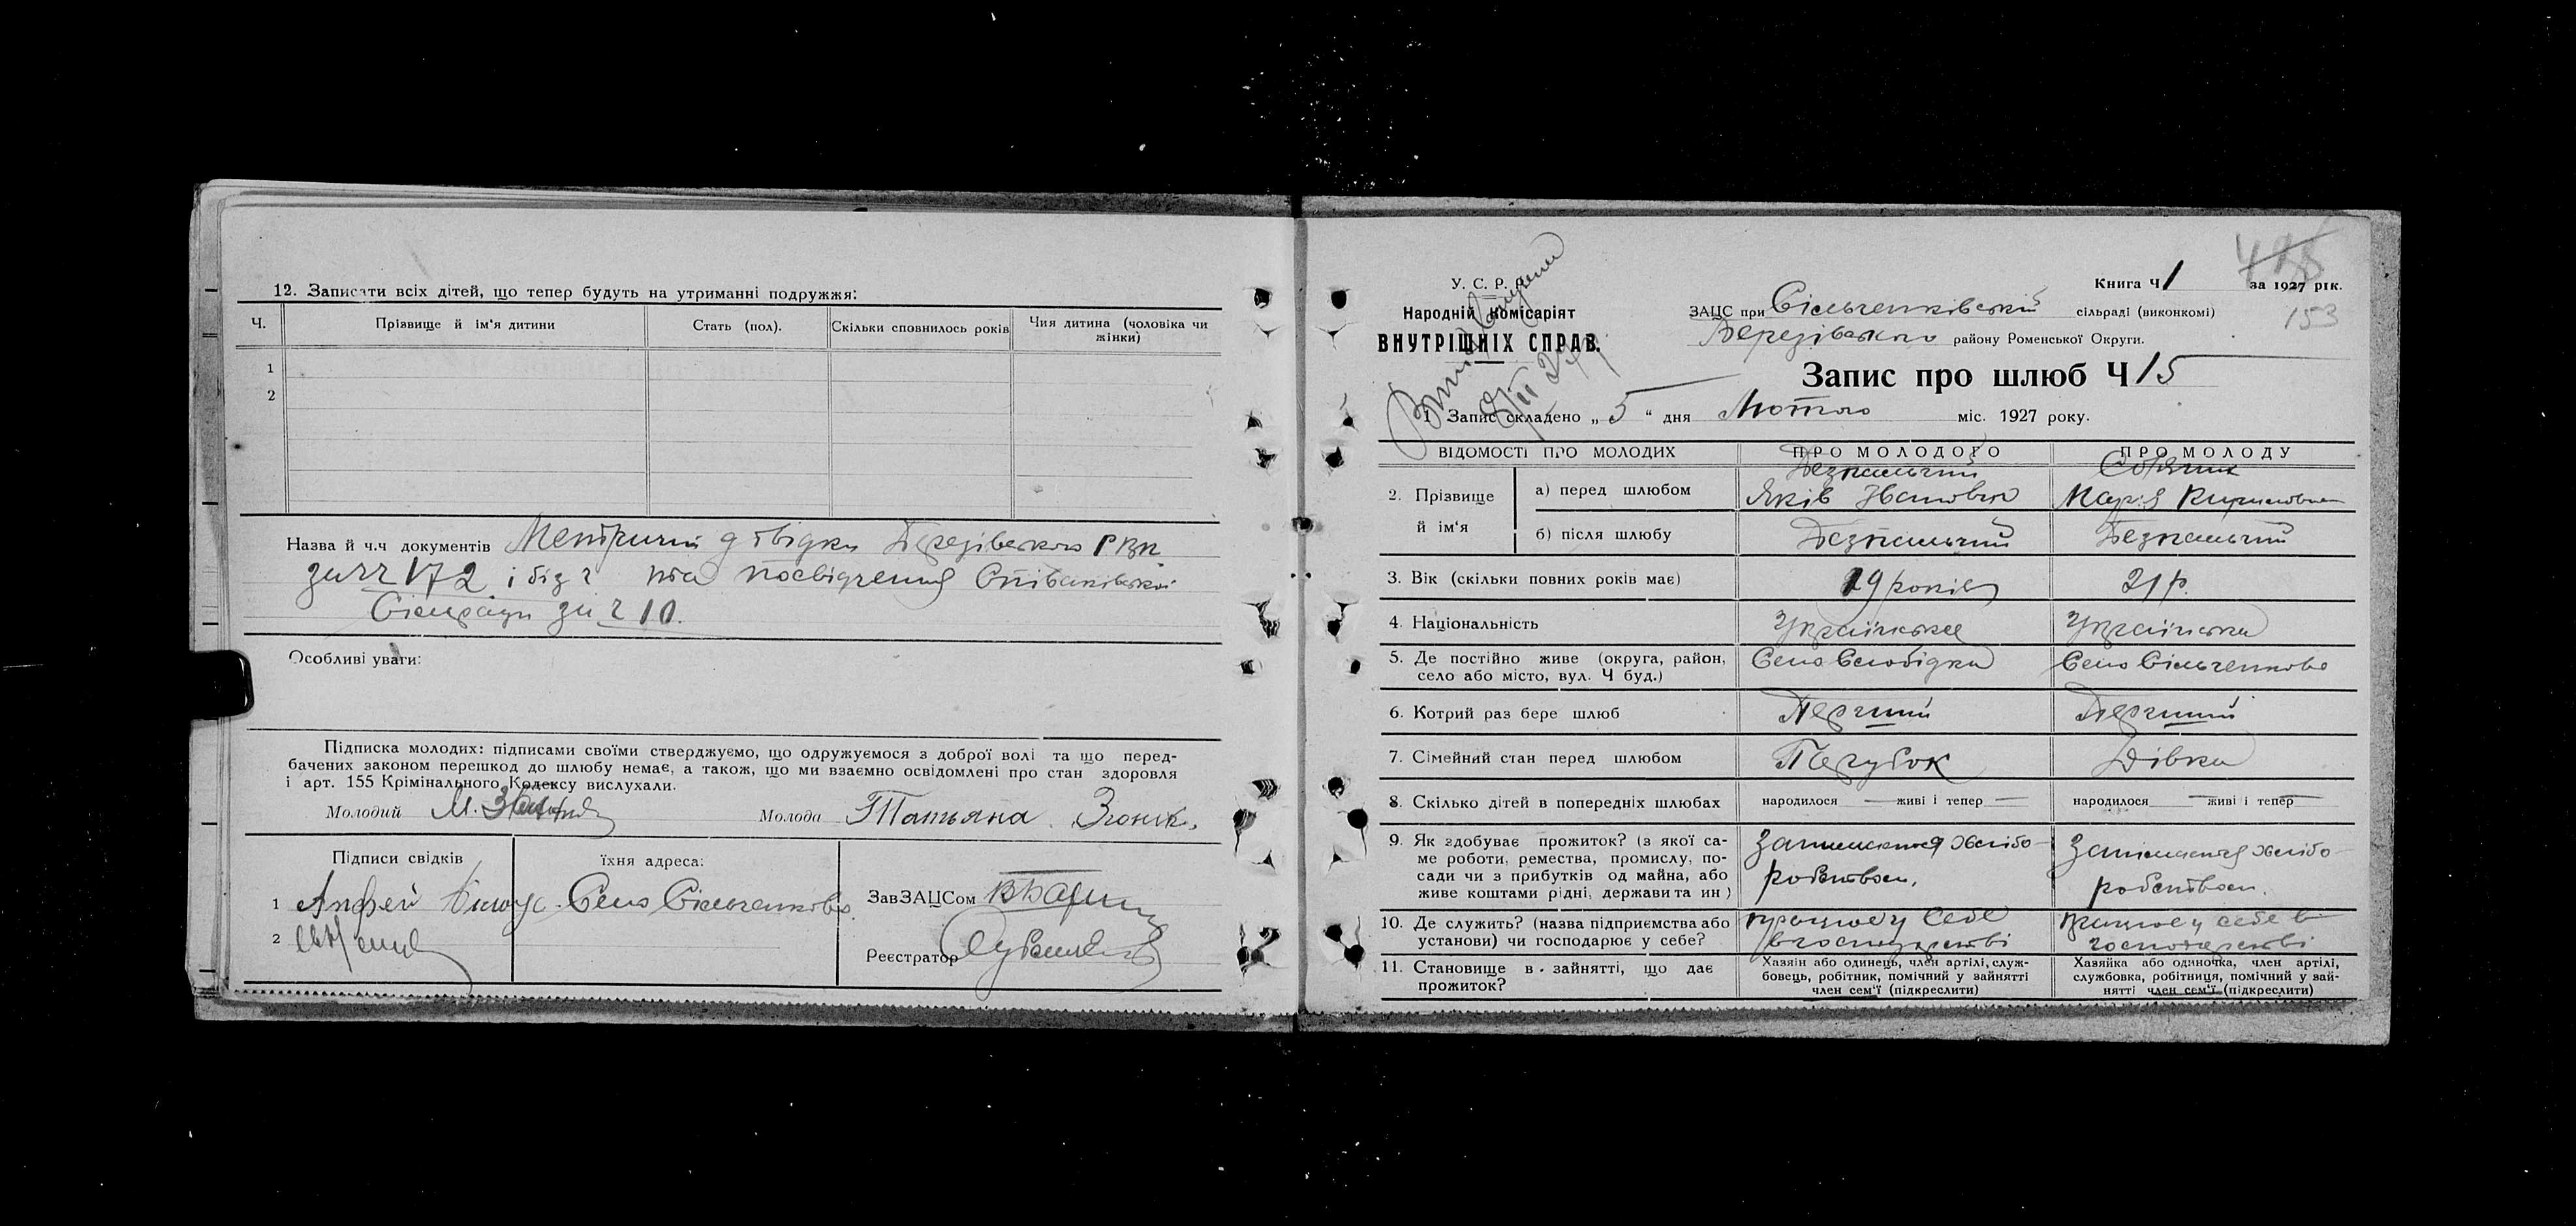 12. Записати всіх дітей, що тепер будуть на утриманні подружжя:
Ч. Прізвище й ім'я дитини Стать (пол). Скільки сповнилось років Чия дитина (чоловіка чи жінки)
1
2
Назва й ч.ч документів Метричні довідки Березівського РВК
за чч 172 і без ч та посвідчення Співаківської
Сільради за ч 10.
Особливі уваги:
Підписка молодих: підписами своїми стверджуємо, що одружуємося з доброї волі та що перед-
бачених законом перешкод до шлюбу немає, а також, що ми взаємно освідомлені про стан здоровля
і арт. 155 Крімінального Кодексу вислухали.
Молодий М. Молода Татьяна
Підписи свідків їхня адреса:
1 Андрей Село Сільченково ЗавЗАЦСом
2
Реєстратор
У. С. Р. Р.
Народній Комісаріят
ВНУТРІШНІХ СПРАВ.
Книга Ч 1 за 1927 рік.
153
ЗАЦС при Сільченківській сільраді (виконкомі)
Березівського району Роменської Округи.
Запис про шлюб Ч 15
1 Запис складено „ 5 “ дня Лютого міс. 1927 року.
ВІДОМОСТІ ПРО МОЛОДИХ ПРО МОЛОДОГО ПРО МОЛОДУ
2. Прізвище й ім'я
а) перед шлюбом Безпальчий Яків Іванович Марія Кириловна
б) після шлюбу Безпальчий Безпальчий
3. Вік (скільки повних років має) 19 років 21 р.
4. Національність Українська Українська
5. Де постійно живе (округа, район,
село або місто, вул. Ч буд.) Село Слобідка Село Сільченково
6. Котрий раз бере шлюб Перший Перший
7. Сімейний стан перед шлюбом Парубок Дівка
8. Скілько дітей в попередніх шлюбах народилося — живі і тепер — народилося — живі і тепер —
9. Як здобуває прожиток? (з якої са-
ме роботи, ремества, промислу, по-
сади чи з прибутків од майна, або
живе коштами рідні, держави та ин) Занимается хлібо-
робством. Занімается хлібо-
робством.
10. Де служить? (назва підприємства або
установи) чи господарює у себе? працює у себе
в господарстві працює у себе в
господарстві
11. Становище в зайнятті, що дає
прожиток?
Хазяін або одинець, член артілі, служ-
бовець, робітник, помічний у зайнятті
член сем'ї (підкреслити)
Хазяйка або одиночка, член артілі,
службовка, робітниця, помічний у зай-
нятті член сем'ї (підкреслити)